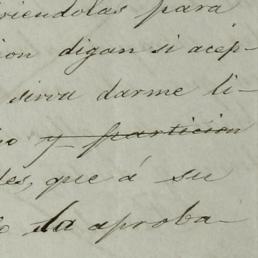 riendolas para
ion digan si acep-
sirva darme li-
o y particion
les, que á su
la aproba-